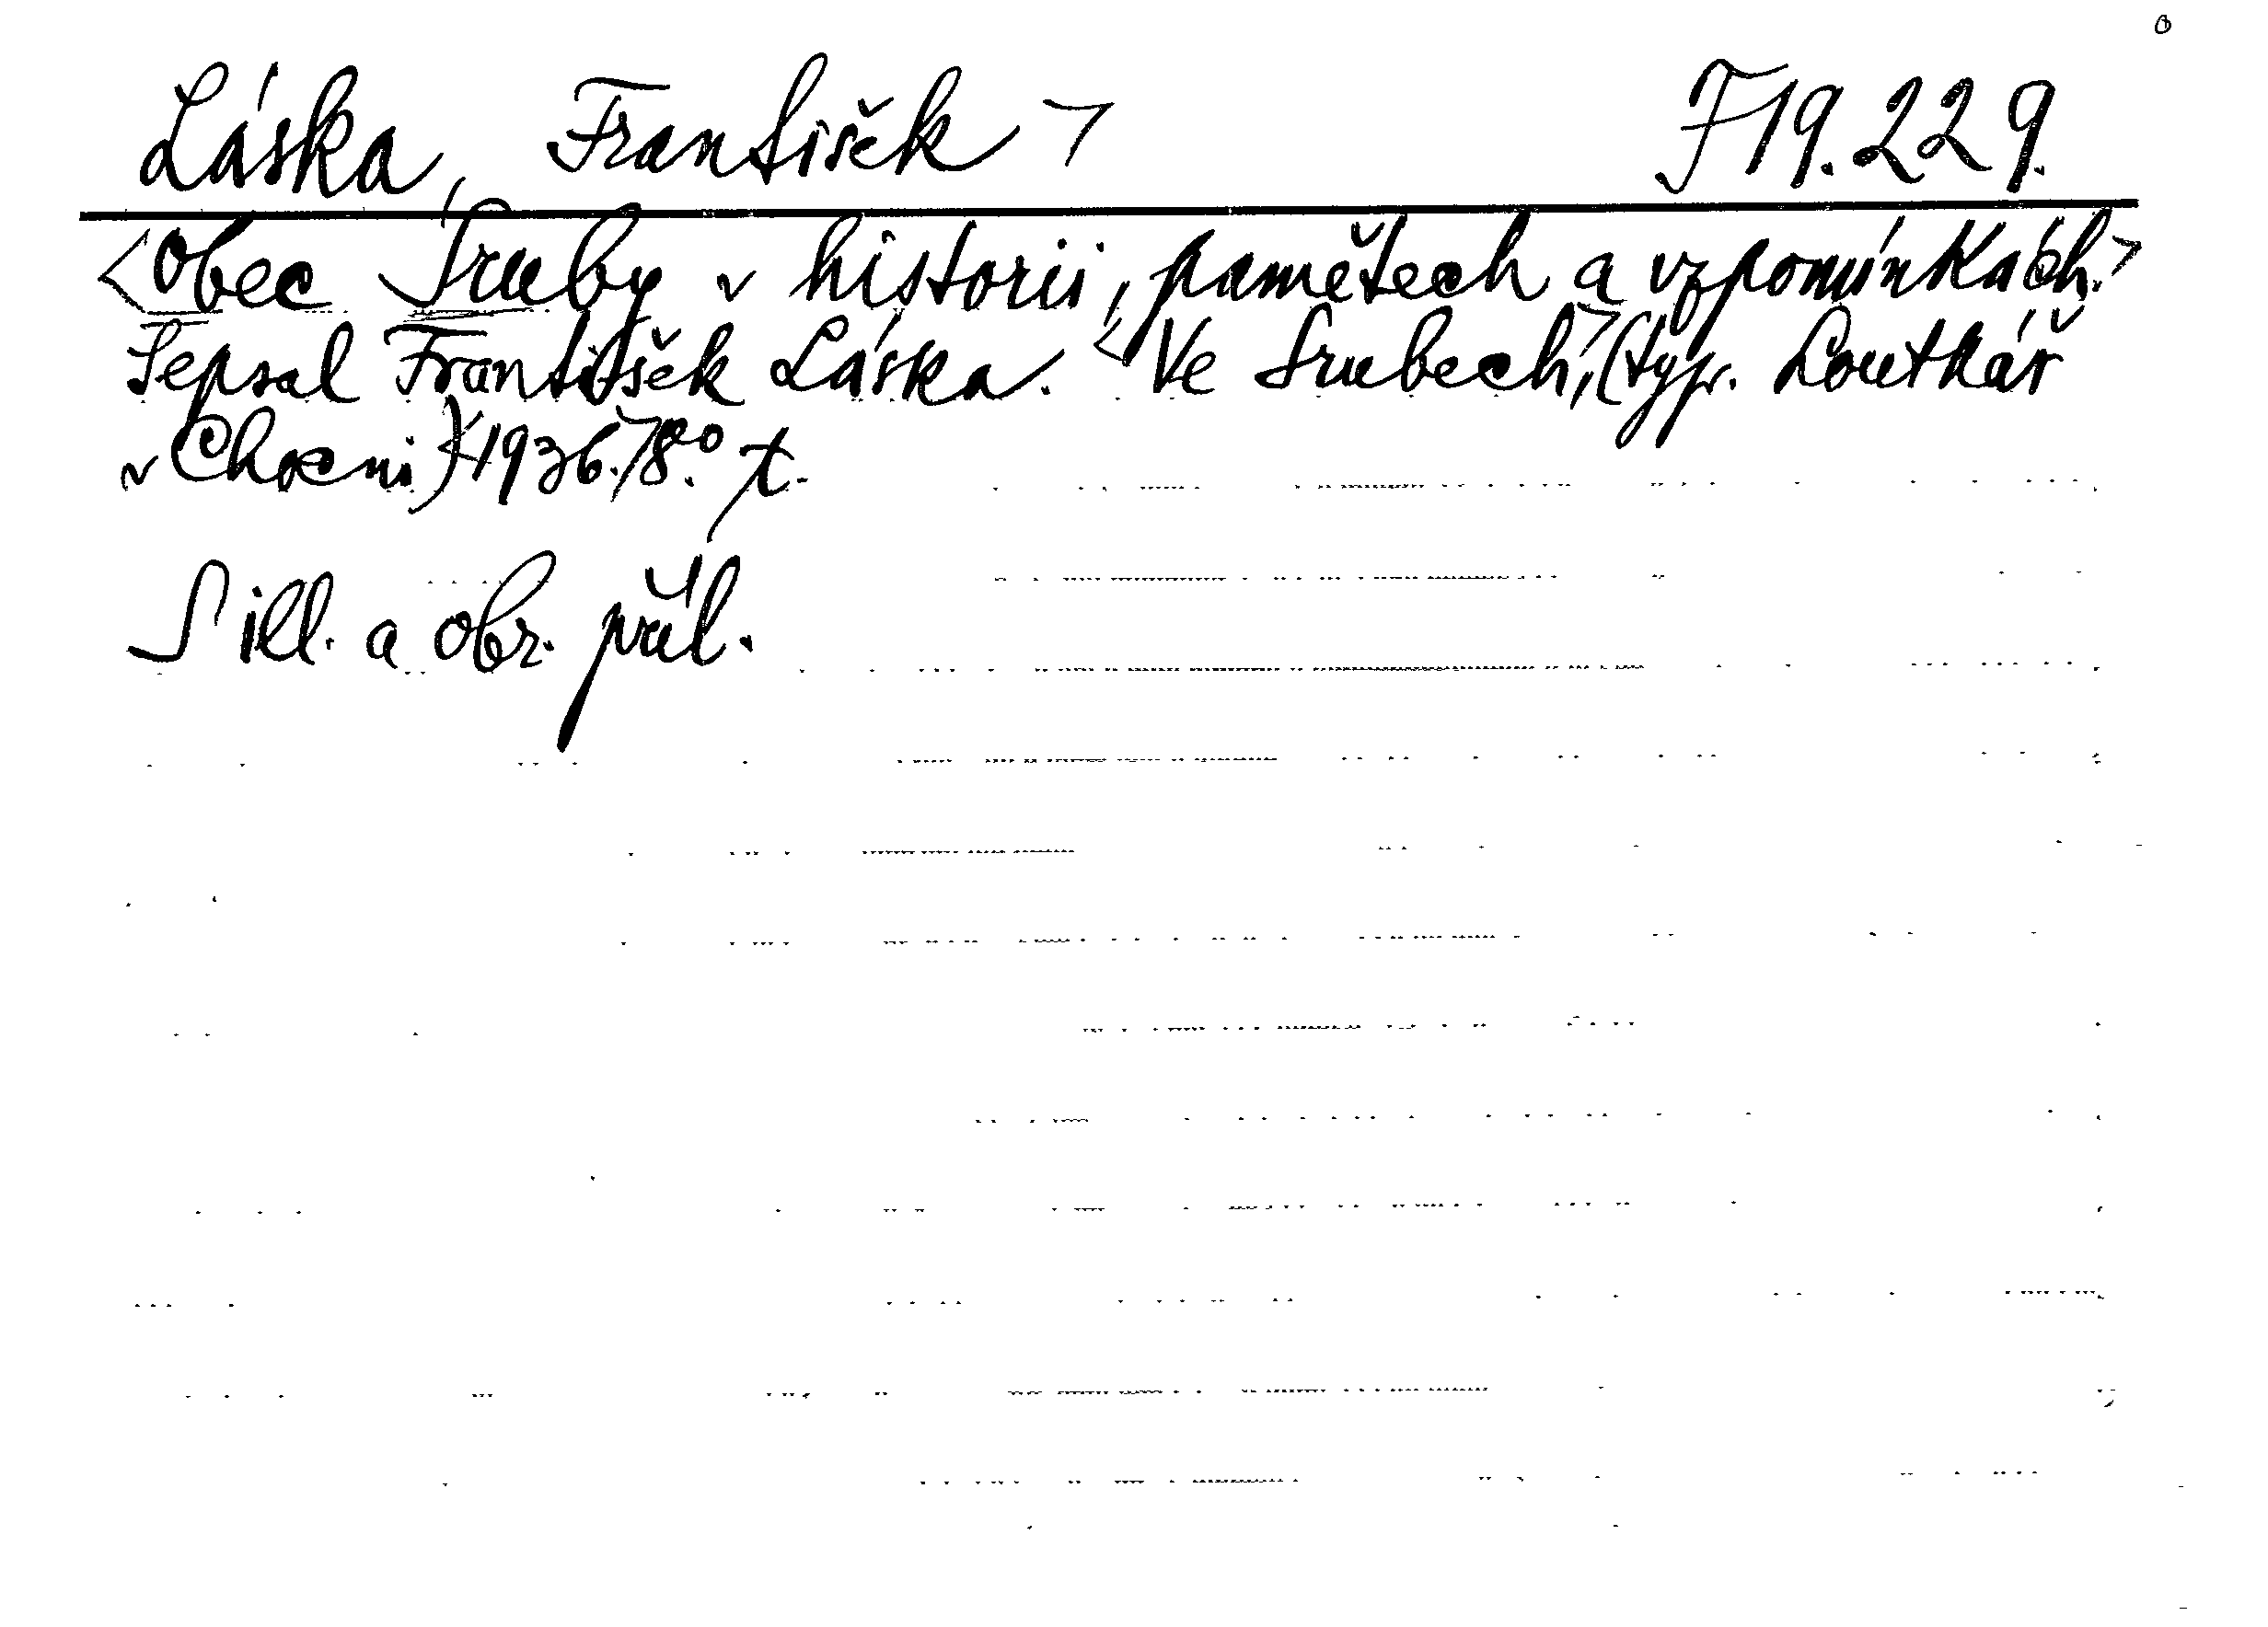 Láska, František >
F 19.229.
<Obec Sruby v historii, pamětech a vzpomínkách.>
Sepsal František Láska. <Ve Srubech,> (typ. Loutkář
v Chocni) <1936.> 8.°
S ill. a obr. příl.